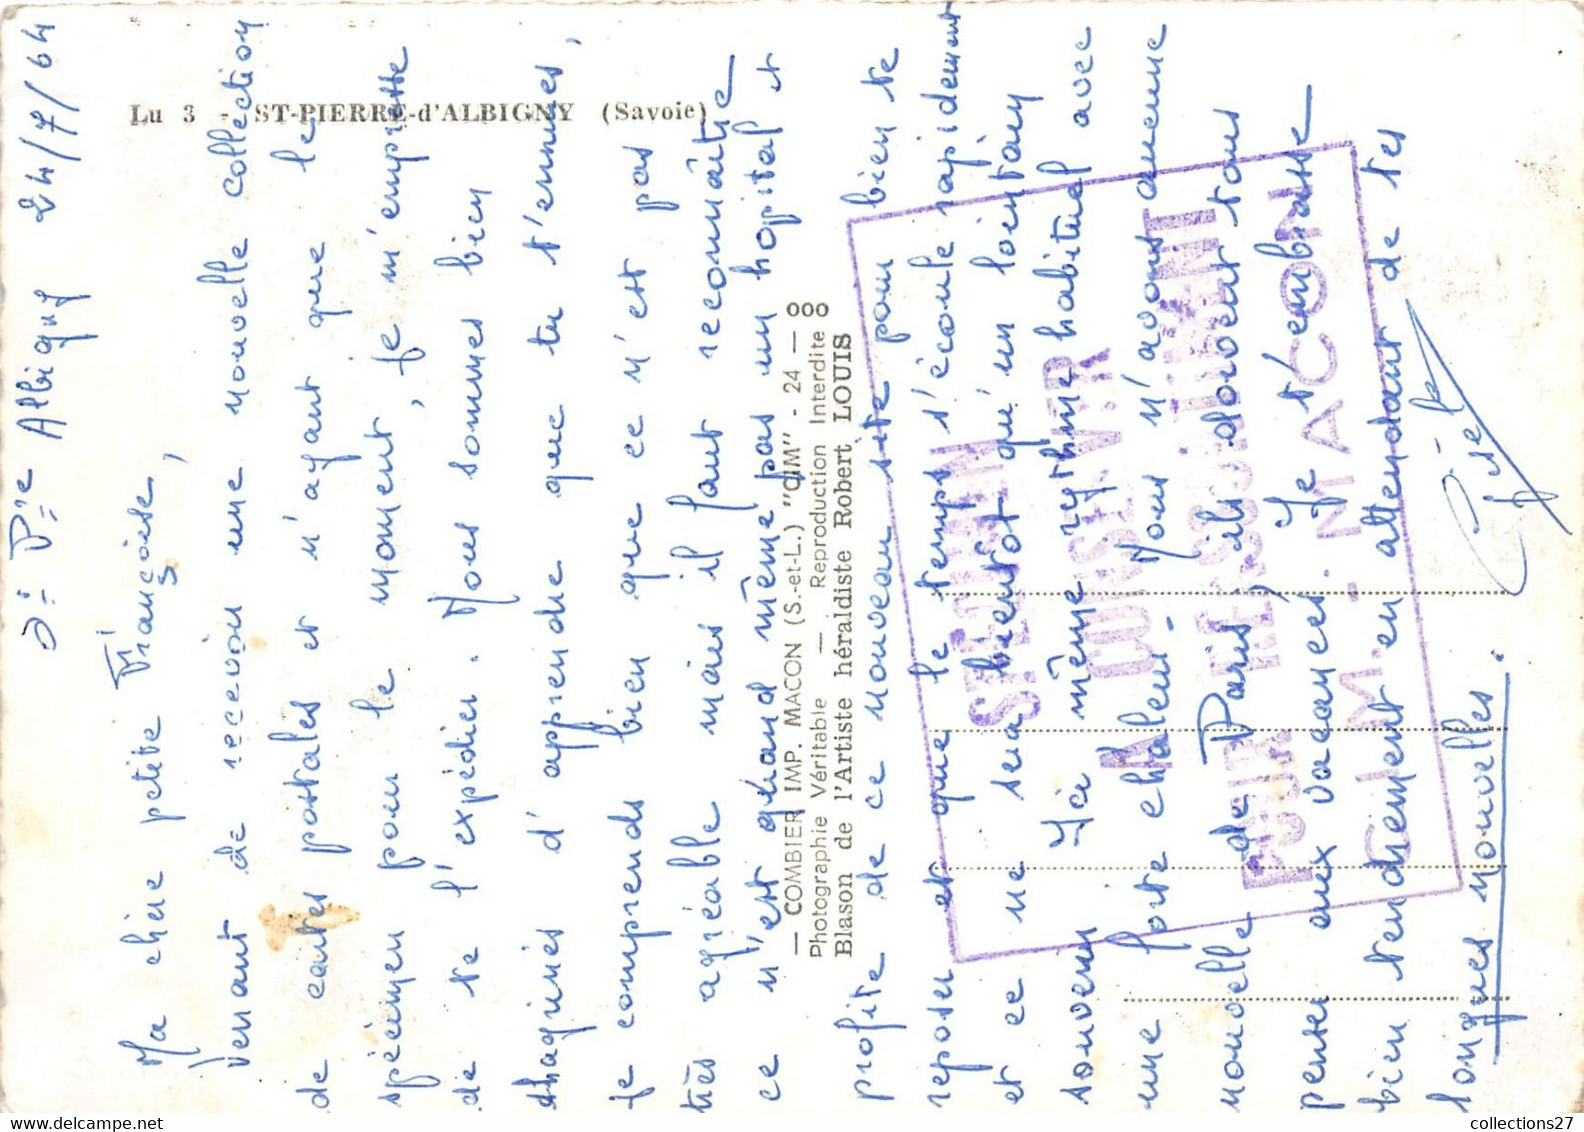 St Pre Albigny 24/7/64
Ma chère petite Françoise,
Venant de recevoir une nouvelle collection
de cartes postales et n'ayant que le
spécimen pour le moment, je m'empresse
de te l'expédier. Nous sommes bien
chagrinés d'apprendre que tu t'ennuies,
je comprends bien que ce n'est pas
très agréable mais il faut reconnaître
ce n'est quand même pas un hopital et
profite de ce nouveau site pour bien te
reposer et que le temps s'écoule rapidement
et ce ne sera bientot qu'un lointain
souvenir. Ici même rythme habituel avec
une forte chaleur. Nous n'avons aucune
nouvelle de Paris, ils doivent tous
penser aux vacances. Je t'embrasse
bien tendrement en attendant de tes
longues nouvelles.
Gisèle
Lu 3 - ST-PIERRE-d'ALBIGNY (Savoie)
— COMBIER IMP. MACON (S.-et-L.) "CIM" - 24 — 000
Photographie Véritable — Reproduction Interdite
Blason de l'Artiste héraldiste Robert LOUIS
SPECIMEN
A CONSERVER
POUR REASSORTIMENT
C.I.M. - MACON
collections27